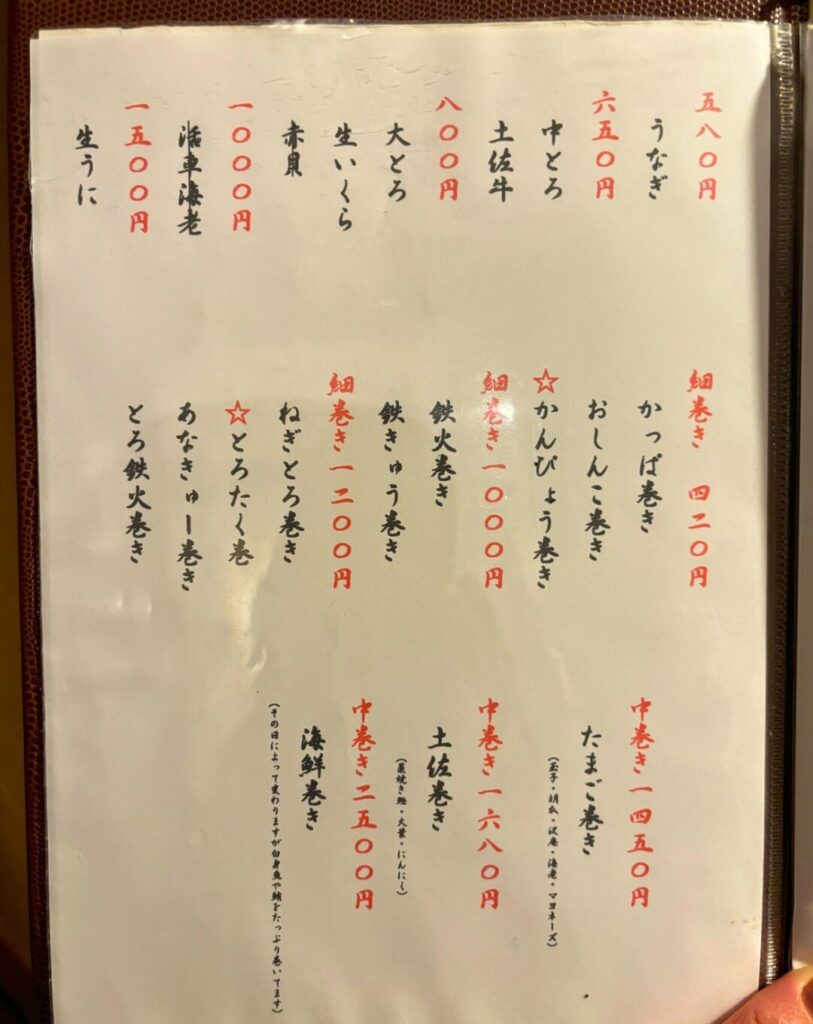 五八〇円
うなぎ
六五〇円
中とろ
土佐牛
八〇〇円
大とろ
生いくら
赤貝
一〇〇〇円
活車海老
一五〇〇円
生うに
細巻き 四二〇円
かっぱ巻き
おしんこ巻き
☆かんぴょう巻き
細巻き一〇〇〇円
鉄火巻き
鉄きゅう巻き
細巻き一二〇〇円
ねぎとろ巻き
☆とろたく巻
あなきゅー巻き
とろ鉄火巻き
中巻き一四五〇円
たまご巻き
(玉子・胡瓜・沢庵・海老・マヨネーズ)
中巻き一六八〇円
土佐巻き
(藁焼き鰹・大葉・にんにく)
中巻き二五〇〇円
海鮮巻き
(その日によって変わりますが白身魚や鮪をたっぷり巻いてます)